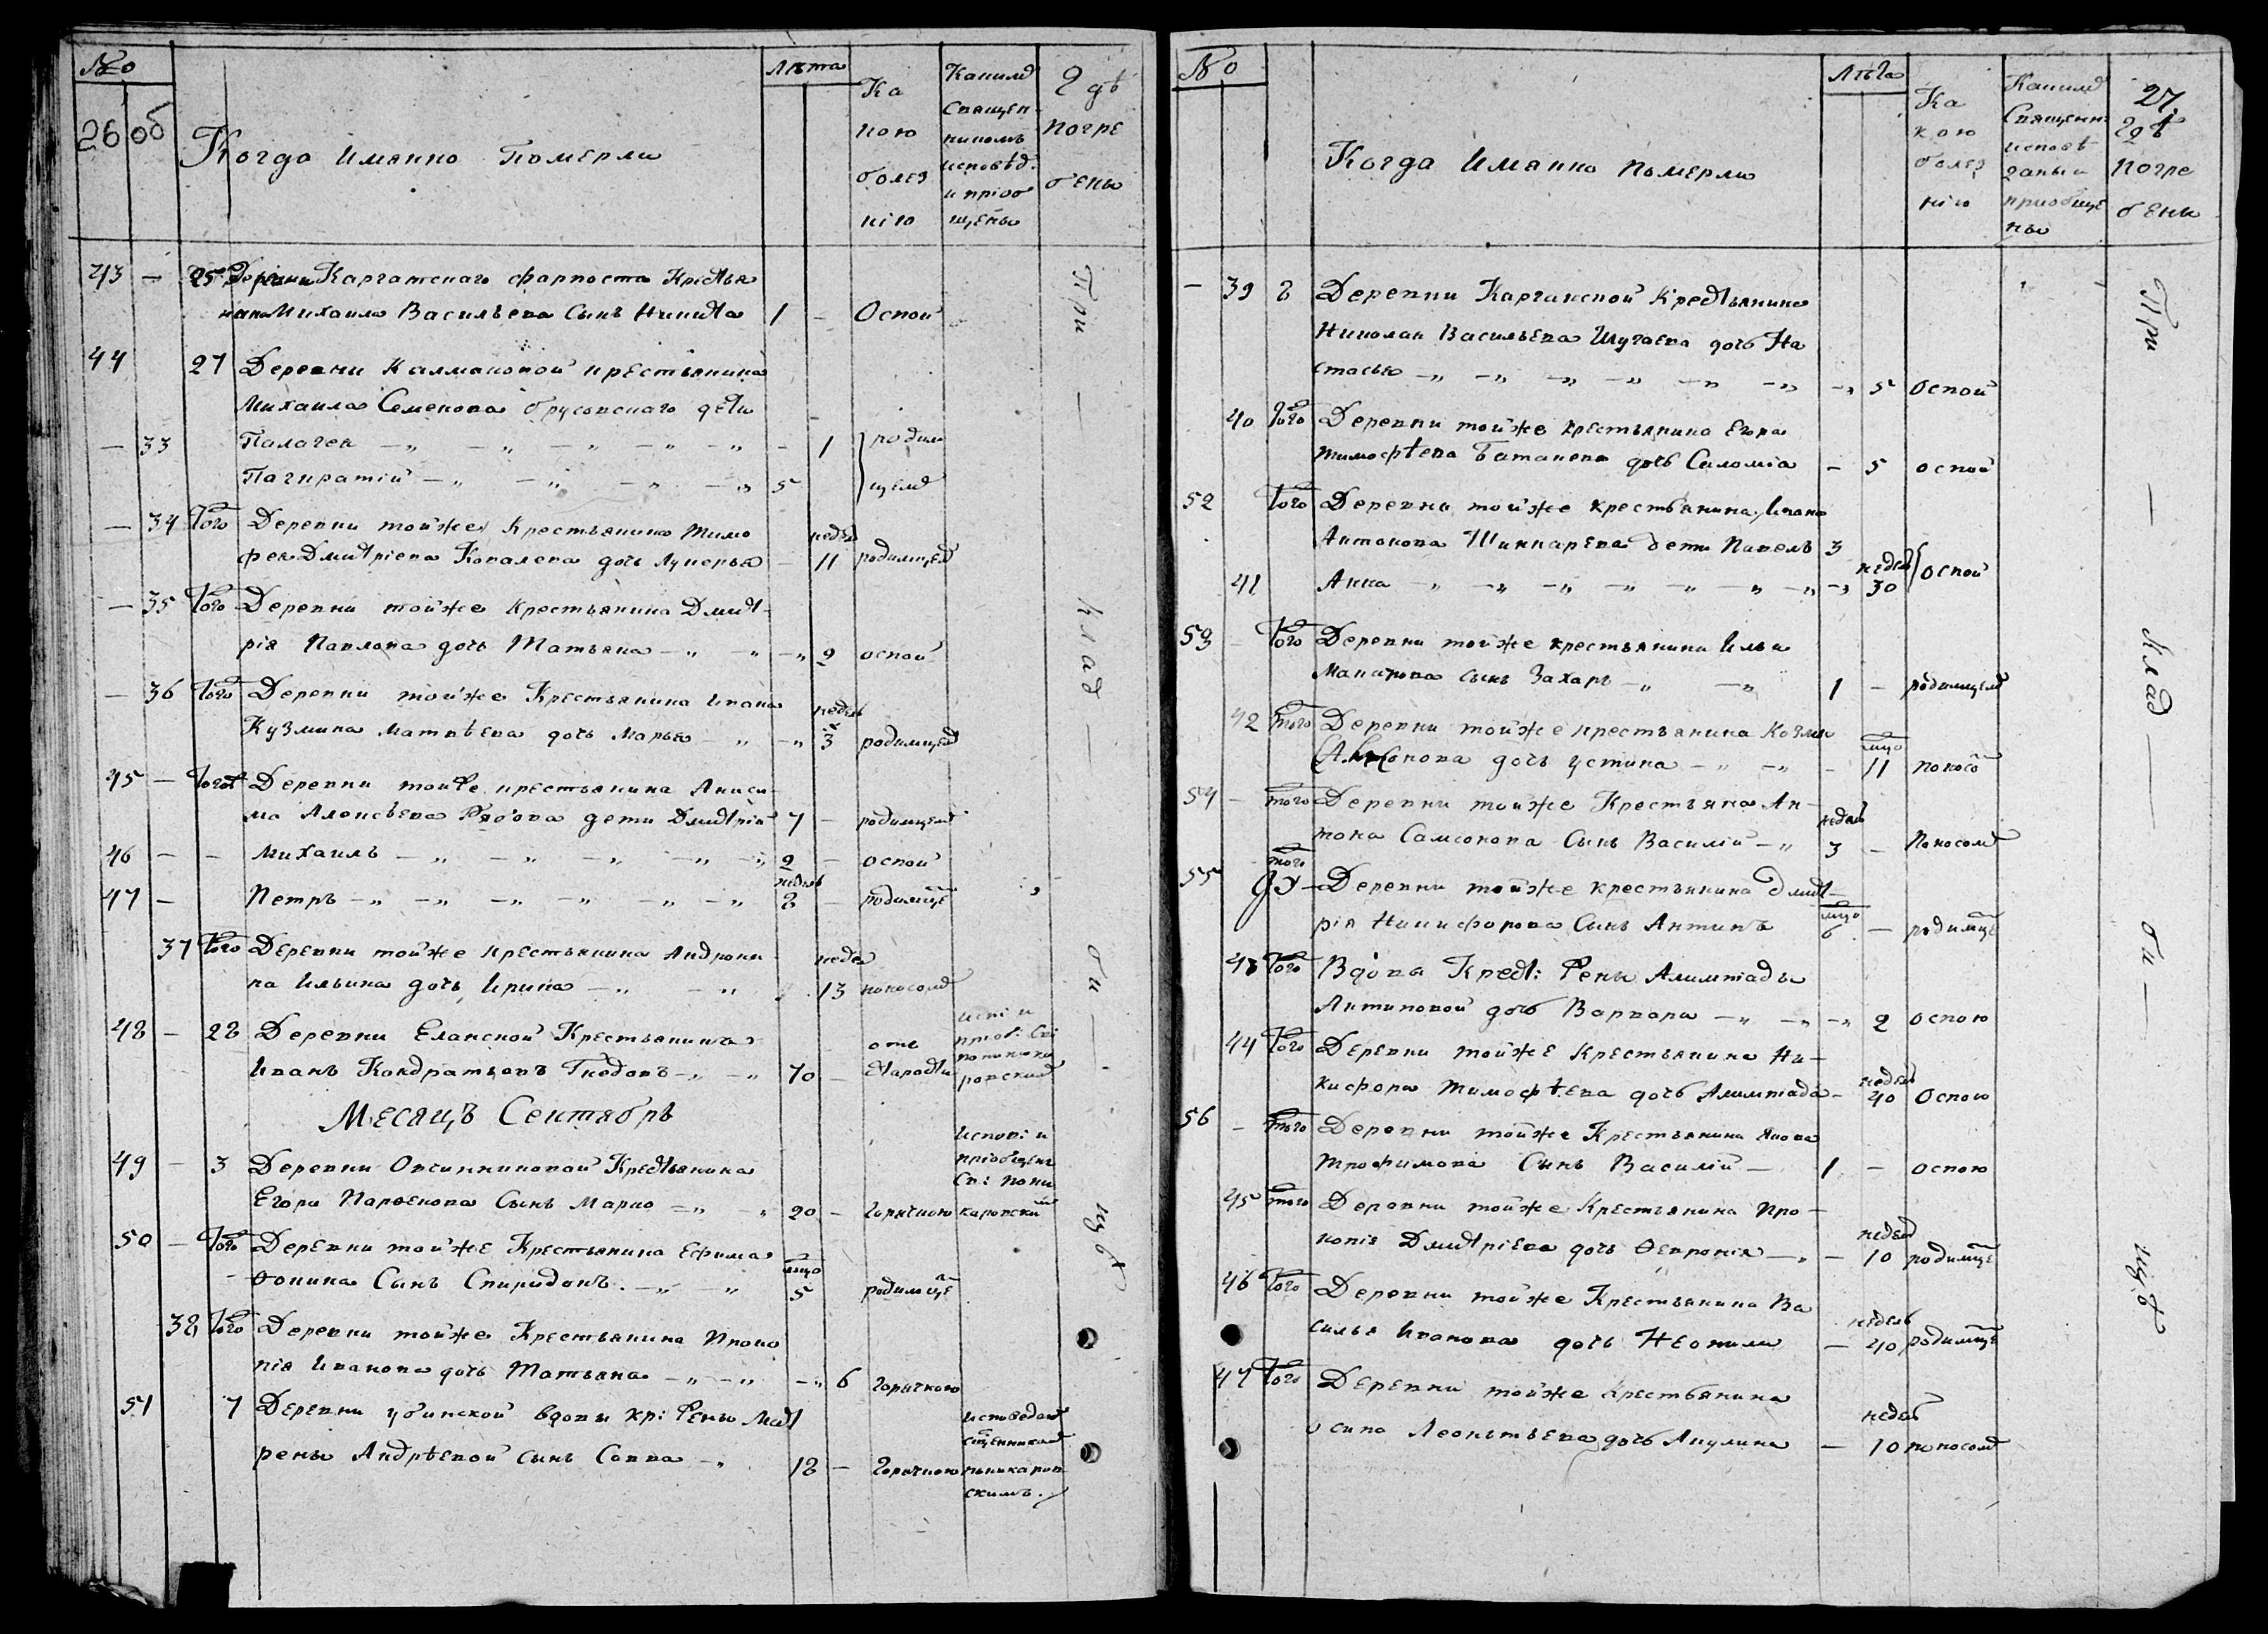 №
26 об
Когда Имянно Померли
Лѣта
Ка
кою
болез
нію
Каимъ
Священ-
никомъ
исповѣд.
и пріоб
щены
Гдѣ
Погре
бены
43 — 25 Деревни Каргатскаго фарпоста Крестья
нина Михаила Васильева Сынъ Никита 1 — Оспой
44 27 Деревни Калмаковой крестьянина
Михаила Семенова брусовскаго дети
— 33 Палагея — 1 родим
Пагкратій 5 цемъ
— 34 Того Деревни тойже Крестьянина Тимо
фея Дмитріева Ковалева дочь Лукерья — недѣль 11 родимцемъ
— 35 Того Деревни тойже Крестьянина Дмит-
рія Павлова дочь Татьяна — 2 оспой
— 36 Того Деревни тойже Крестьянина Ивана
Кузмина Матвѣева дочь Марья — недель 3 родимцемъ
45 — Того Деревни тойже крестьянина Аниси-
ма Алексѣева Рябова дети Дмитрій 7 — родимцемъ
46 — — Михаилъ 2 — оспой
47 — Петръ недель 2 — родимце
37 Того Деревни тойже крестьянина Андрони
ка Ильина дочь Ирина недел 13 поносомъ
48 — 28 Деревни Еланской Крестьянинъ
Иванъ Кондратьевъ Гнедовъ 70 — отъ старости
Месяцъ Сентябрь
49 — 3 Деревни Овчинниковой Крестьянина
Егора Парѳенова Сынъ Марко 20 — Горячкою
Исповѣ: и
пріобщенъ
Св: Пони
каровски
50 — Того Деревни тойже Крестьянина Ефима
Ѳокина Сынъ Спиридонъ мцо 5 родимце
38 Того Деревни тойже Крестьянина Проко
пія Иванова дочь Татьяна — 6 Горячкою
51 7 Деревни убинской вдовы кр: Жены Мат
рены Андрѣевой сынъ Савва 18 — Горячкою
исповедан
сщенником
поникаров
скимъ.
При — клад — би — щѣ
№
27.
Когда Имянно Померли
Лѣта
Ка
кою
болез
нію
Каимъ
Священн:
исповѣ
даны и
приобще
ны
Гдѣ
Погре
бены
— 39 8 Деревни Карганской Крестьянина
Николая Васильева Шугаева дочь На
стасья — 5 Оспой
40 Того Деревни тойже крестьянина Егора
Тимофѣева Батанева дочь Саломіа — 5 оспой
52 Того Деревни тойже крестьянина Ивана
Антонова Шинкарева дети Павелъ 3
41 Анна — недель 30 оспой
53 — Того Деревни тойже крестьянина Ильи
Манатова сынъ Захаръ 1 — родимцемъ
42 того Деревни тойже крестьянина Козмы
Самсонова дочь устина — мцо 11 поносо
54 — того Деревни тойже Крестьяна Ан-
тона Самсонова Сынъ Василій недель 3 — Поносомъ
55 того — Деревни тойже крестьянина Дмит-
рія Никифорова Сынъ Антипъ мцо 6 — родимце
43 Того Вдовы Крест: Жены Алимпіады
Антиповой дочь Варвара — 2 оспою
44 Того Деревни тойже Крестьянина Ни-
кифора Тимофѣева дочь Алимпіада — недель 40 Оспою
56 — того Деревни тойже Крестьянина Якова
Трофимова Сынъ Василій — 1 — оспою
45 того Деревни тойже Крестьянина Про-
копія Дмитріева дочь Ѳевронія — недель 10 родимце
46 Того Деревни тойже Крестьянина Ва
силья Иванова дочь Неонила — недель 40 родимце
47 Того Деревни тойже Крестьянина
Осипа Леонтьева дочь Акулина — недель 10 поносомъ
При — клад — би — щѣ